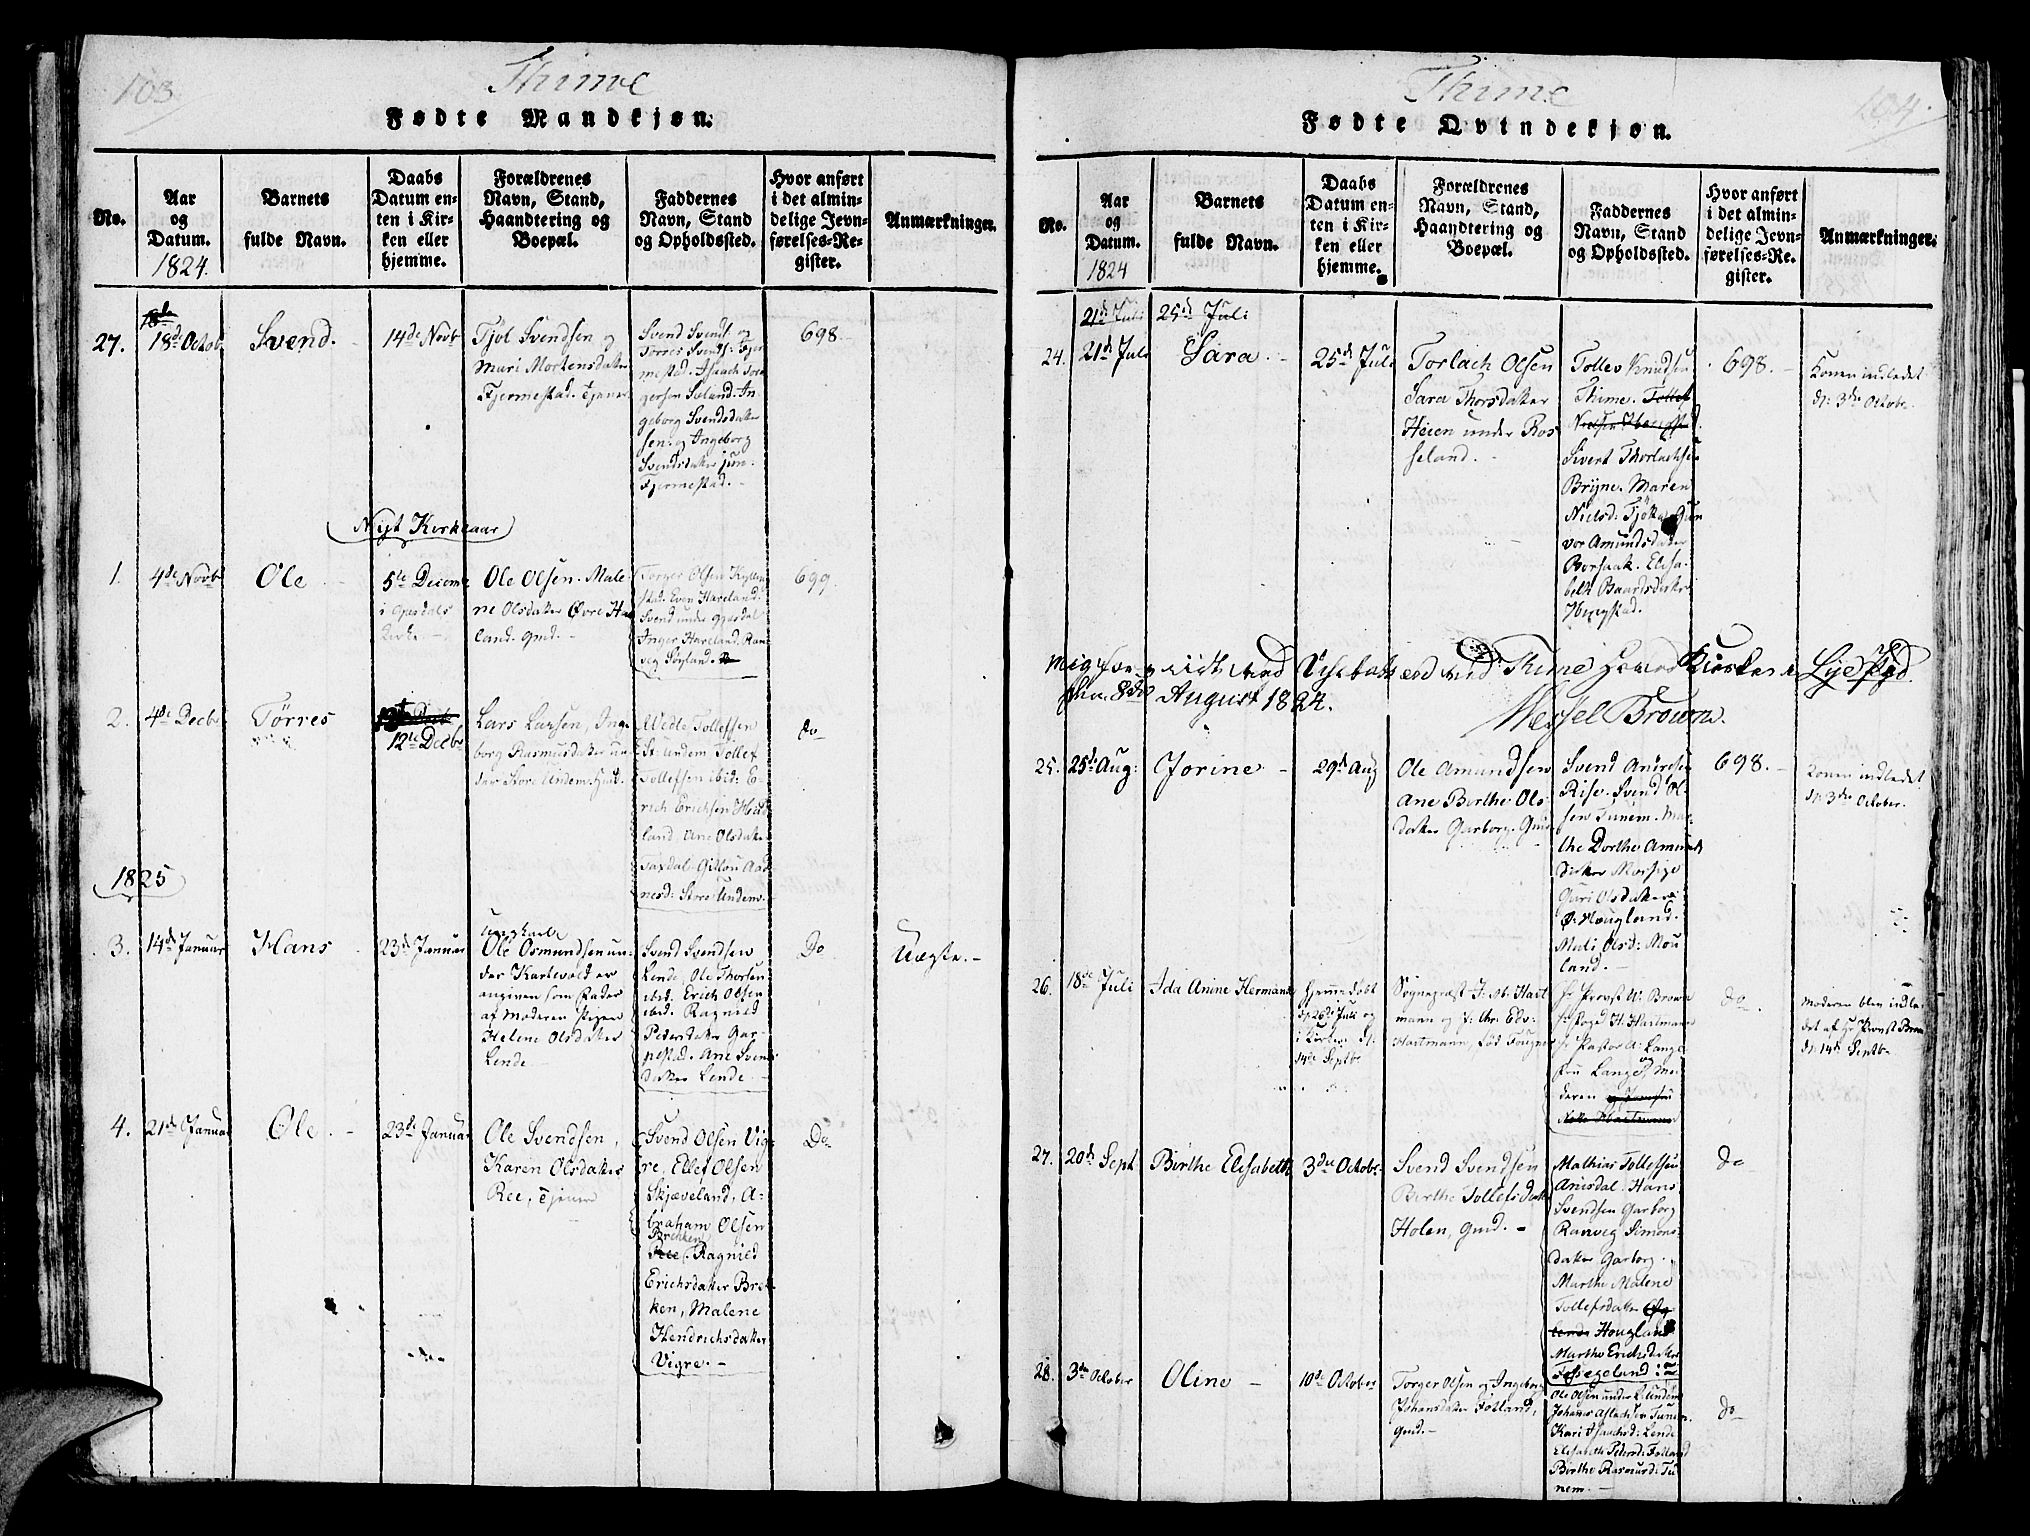 103
Thime
Fødte Mandkjøn.
No.
Aar
og
Datum.
1824.
Barnets
fulde Navn.
Daabs
Datum en-
ten i Kir-
ken eller
hjemme.
Forældrenes
Navn, Stand,
Haandtering og
Boepæl.
Faddernes
Navn, Stand
og Opholdssted.
Hvor anført
i det almin-
delige Jevn-
førelses-Re-
gister.
Anmærkninger.
27.
18de Octob
Svend.
14de Novb
Tjøl Svendsen og
Mari Mortensdatter
Fjermestad. Tjener
Svend Svends: og
Torres Svends: Fjer
mestad. Isaach Tor
gersen Sæland. In
geborg Svendsdatter
sen: og Ingeborg
Svendsdatter jun:
Fjermestad.
698.
Nyt Kirkeaar
1.
4de Novb
Ole
5te Decemb
i Gjesdals
Kirke
Ole Olsen. Male-
ne Olsdatter Øvre Ha
land. gmd.
Torger Olsen Kyllin
stad. Even Haveland.
Svend under Gjesdal
Inger Haveland. Ran
veg Søyland.
699.
2.
4de Decb
Tørres
12te Decb
Lars Larsen, Inge
borg Rasmusdatter un
der Store Undem. Gmd.
Wedle Tollefsen
St: Undem. Tollef
Tollefsen ibid: E-
rich Erichsen Høi
land. Ane Olsdatter
Taxdal. Gitlou Aad
nesd: Store Undem.
do
1825
3.
14de Januar
Hans
23de Januar
Ungkarl
Ole Osmundsen un-
der Kartevold er
angiven som Fader
af Moderen Pigen
Helene Olsdatter
Lende
Svend Svendsen
Lende, Ole Thorsen
ibid. Erich Olsen
ibid. Ragnild
Pedersdatter Gar-
pestad. Ane Svends
datter Lende
Do
Uægte.
4.
21de Januar
Ole.
23de Januar
Ole Svendsen,
Karen Olsdatter
Ree, Tjener
Svend Olsen Vig-
re, Ellef Olsen
Skjæveland, A-
braham Olsen
Brekken
Ree. Ragnild
Erichsdatter Brek
ken, Malene
Hendrichsdatter
Vigre.
Do
104.
Thime
Fødte Qvindekjøn.
No.
Aar
og
Datum.
1824
Barnets
fulde Navn.
Daabs
Datum en-
ten i Kir-
ken eller
hjemme.
Forældrenes
Navn, Stand,
Haandtering og
Boepæl.
Faddernes
Navn, Stand
og Opholdssted.
Hvor anført
i det almin-
delige Jevn-
førelses-Re-
gister.
Anmærkninger.
21de Juli 25de Juli
24.
21de Juli
Sara
25de Juli
Torlach Olsen
Sara Thorsdatter
Heien under Ros
seland.
Tollev Knudsen
Thime. Tollef
Sivert Thorlachsen
Bryne. Maren
Nielsd: Tjøtta. Gun
vor Amundsdatter
Borsaak. Elisa-
beth Baardsdatter
Herigstad.
698.
Konen indledet
d: 3de October.
mig foreviist ved Visitats med Thime Hoved Kirke i Lye Pgd.
den 8de August 1824.
Wessel Brown.
25.
25de Aug:
Jorine
29de Aug
Ole Amundsen
Ane Berthe Ols
datter Garborg. Gmd
Svend Andresen
Rise. Svend Ol-
sen Tunem. Mar-
the Dorthe Amunds
datter Mossige
Guri Olsdatter
Ø: Hougland.
Mali Olsd: Mou
land.
698.
Konen indledet
d: 3de October.
26.
18de Juli
Ada Anine Hermande
Hjemmedøbt
d: 26de Juli og
i Kirken d:
14de Septb
Sognepræst J: M: Hart
mann og F: Chr: Edv:
Hartmann, fød Fougner
Hr Provst W: Brown
Hr Pastor A: Lange
Fru Lange, og Mo-
deren
do
Moderen blev indle-
det af Hr Provst Brown
d: 14de Septb
27.
20de Sept
Berthe Elisabeth
3die Octobr
Svend Svendsen
Berthe Tollefsdatter
Holen, gmd.
Mathias Tollefsen
Anisdal. Hans
Svendsen Garborg
Ranveg Simons-
datter Garborg.
Marthe Malene
Tollefsdatter
Hougland
Marthe Erichsdatter
do
28.
3de October
Oline
10de October
Torger Olsen og Ingeborg
Johansdatter Fotland,
gmd.
Ole Olsen under L: Undem
Johannes Aslachsen Tunem.
Kari Isaachsd: Lende
Elisabeth Pedersd: Fotland
Berthe Rasmusd: Tu
nem.
do